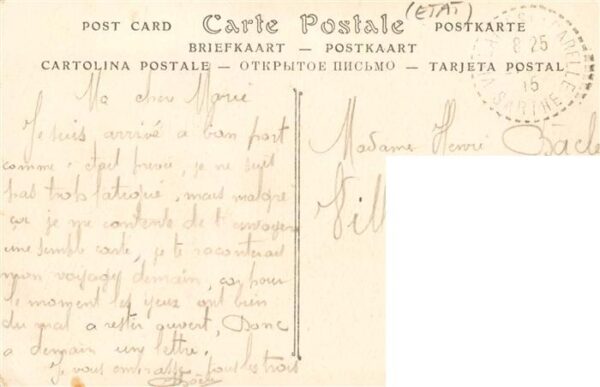 POST CARD Carte Postale (ETAT) POSTKARTE
BRIEFKAART — POSTKAART
CARTOLINA POSTALE — ОТКРЫТОЕ ПИСЬМО — TARJETA POSTAL
8 25
15
SARTHE
Ma cher Marie
Je suis arrivé a bon port
comme c'etait prevu, je ne suit
pas trop fatiqué, mais malgré
ça je me contente de t'envoyer
une simple carte, je te raconterai
mon voyagy demain, car pour
le moment les yeux ont bien
du mal a rester ouvert, Donc
a demain une lettre.
Je vous embrasse tous les trois
Madame Henri
Vill